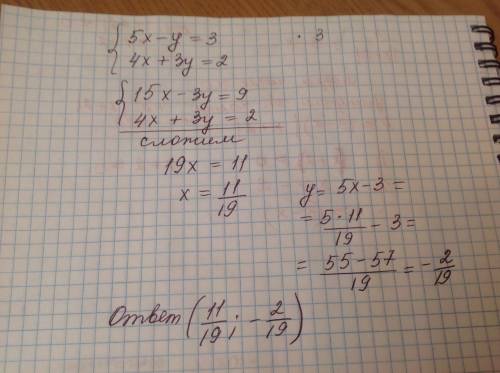 { 5x - y = 3 · 3
4x + 3y = 2
{ 15x - 3y = 9
4x + 3y = 2
сложим
19x = 11
x = 11/19
y = 5x - 3 =
= 5·11/19 - 3 =
= 55-57/19 = -2/19
Ответ (11/19; -2/19)